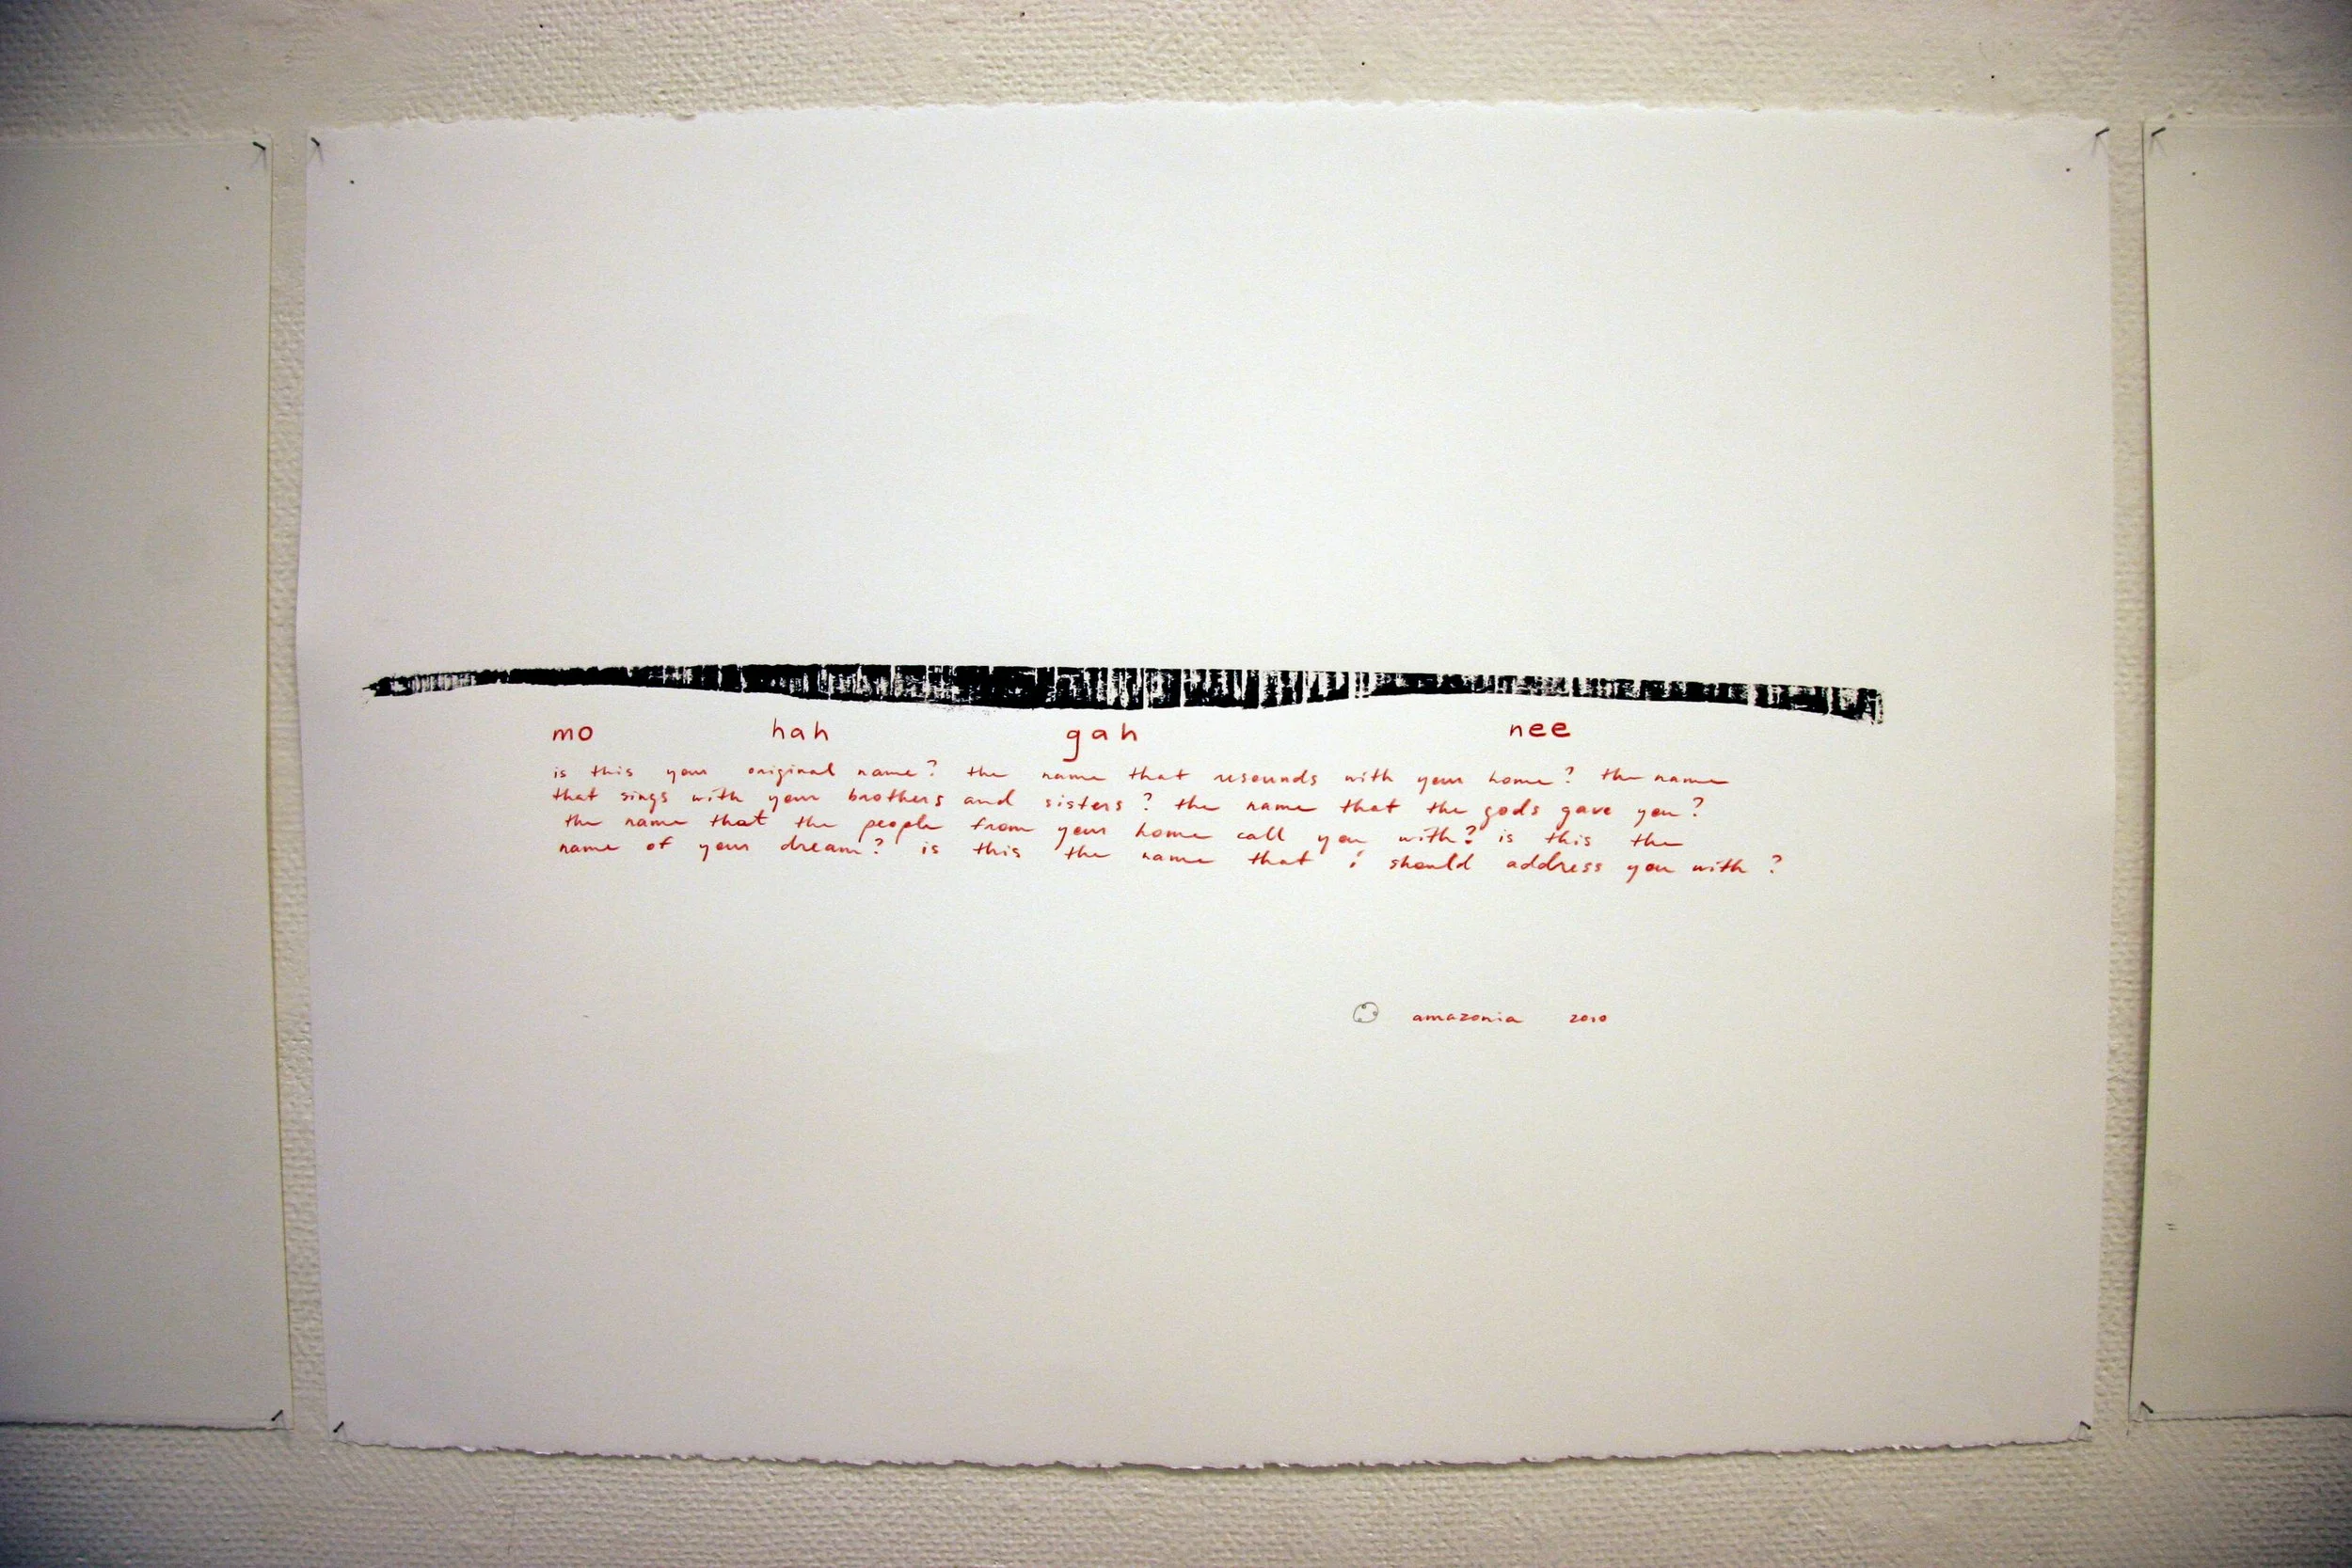 mo hah gah nee
is this your original name? the name that resounds with your home? the name
that sings with your brothers and sisters? the name that the gods gave you?
the name that the people from your home call you with? is this the
name of your dream? is this the name that i should address you with?
amazonia 2010